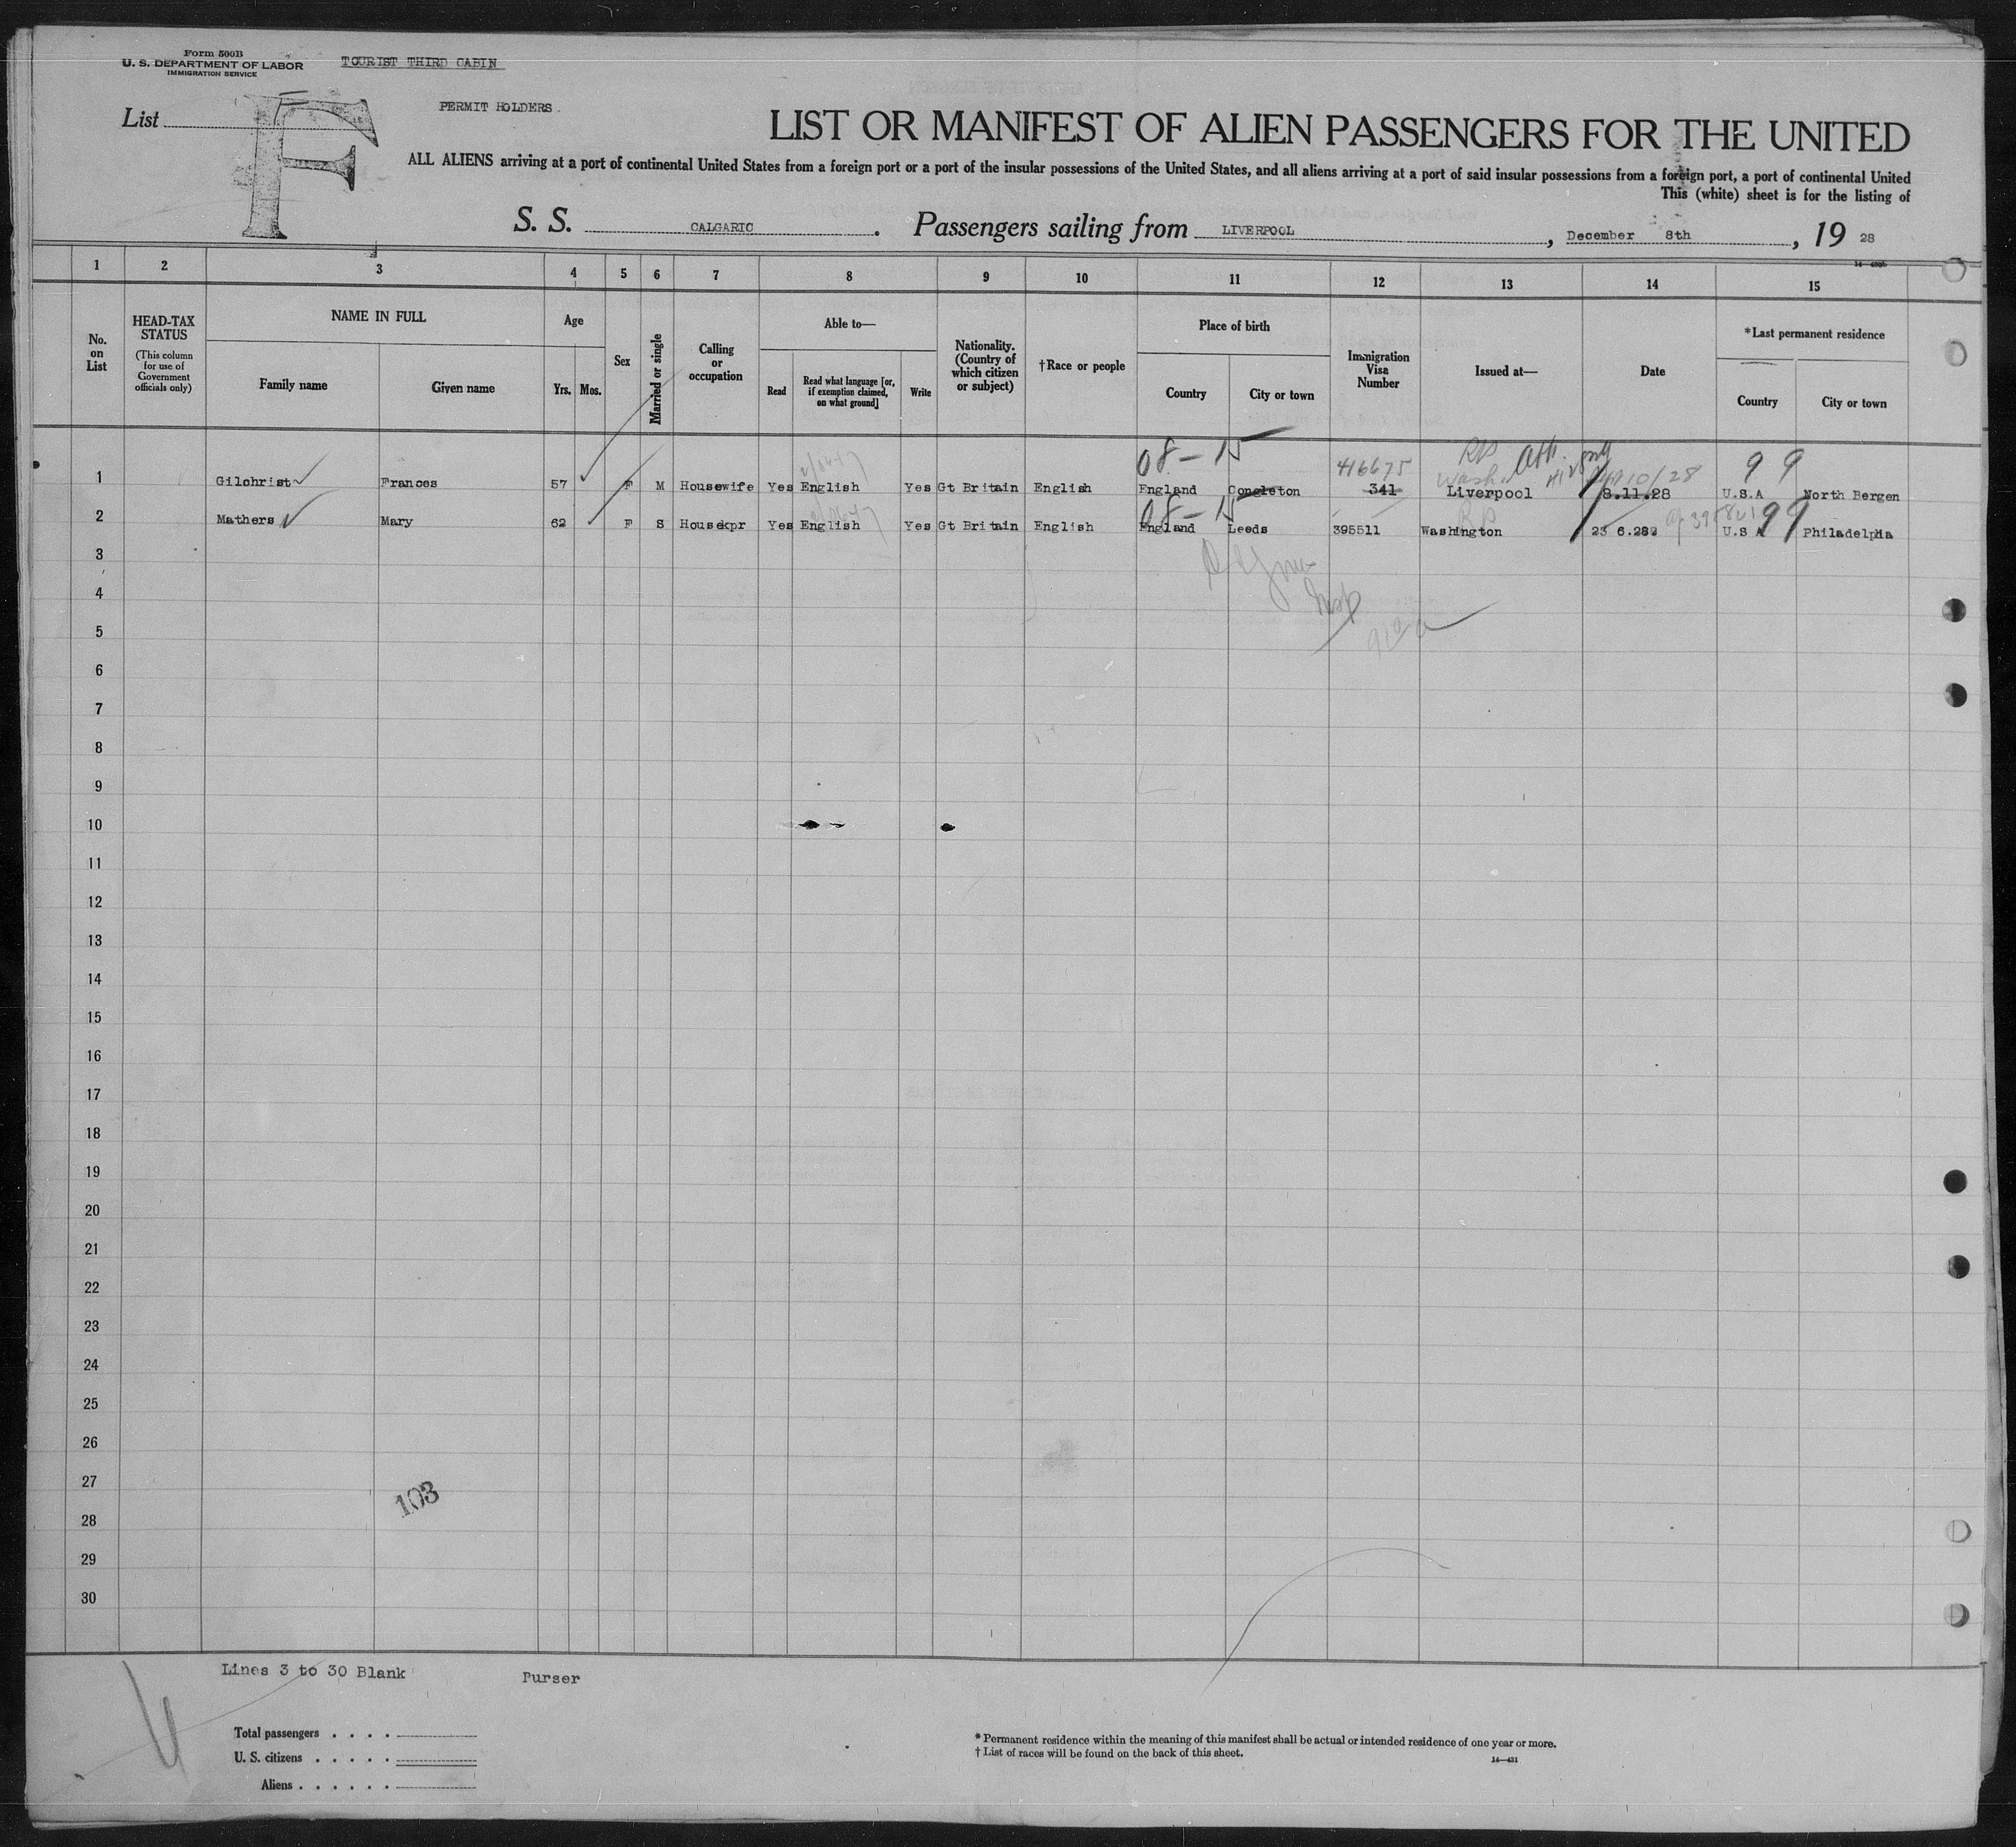 Form 500B
U. S. DEPARTMENT OF LABOR
IMMIGRATION SERVICE
TOURIST THIRD CABIN
List
F
PERMIT HOLDERS.
LIST OR MANIFEST OF ALIEN PASSENGERS FOR THE UNITED
ALL ALIENS arriving at a port of continental United States from a foreign port or a port of the insular possessions of the United States, and all aliens arriving at a port of said insular possessions from a foreign port, a port of continental United
This (white) sheet is for the listing of
S. S. CALGARIC. Passengers sailing from LIVERPOOL, December 8th, 19 28
1 2 3 4 5 6 7 8 9 10 11 12 13 14 15
No. on List
HEAD-TAX STATUS
(This column for use of Government officials only)
NAME IN FULL
Family name
Given name
Age
Yrs. Mos.
Sex
Married or single
Calling or occupation
Able to—
Read
Read what language [or, if exemption claimed, on what ground]
Write
Nationality. (Country of which citizen or subject)
†Race or people
Place of birth
Country
City or town
Immigration Visa Number
Issued at—
Date
*Last permanent residence
Country
City or town
08 - 15 416675 RP 10/28 99
1 Gilchrist Frances 57 F M Housewife Yes English Yes Gt Britain English England Congleton 341 Liverpool 8.11.28 U.S.A North Bergen
08 - 15 RP 99
2 Mathers Mary 62 F S Housekpr Yes English Yes Gt Britain English England Leeds 395511 Washington 23 6.28 U.S A Philadelphia
3
4
Insp
5
6
7
8
9
10
11
12
13
14
15
16
17
18
19
20
21
22
23
24
25
26
27
103
28
29
30
Lines 3 to 30 Blank Purser
Total passengers . . . .
U. S. citizens . . . . .
Aliens . . . . . .
* Permanent residence within the meaning of this manifest shall be actual or intended residence of one year or more.
† List of races will be found on the back of this sheet.
14—431